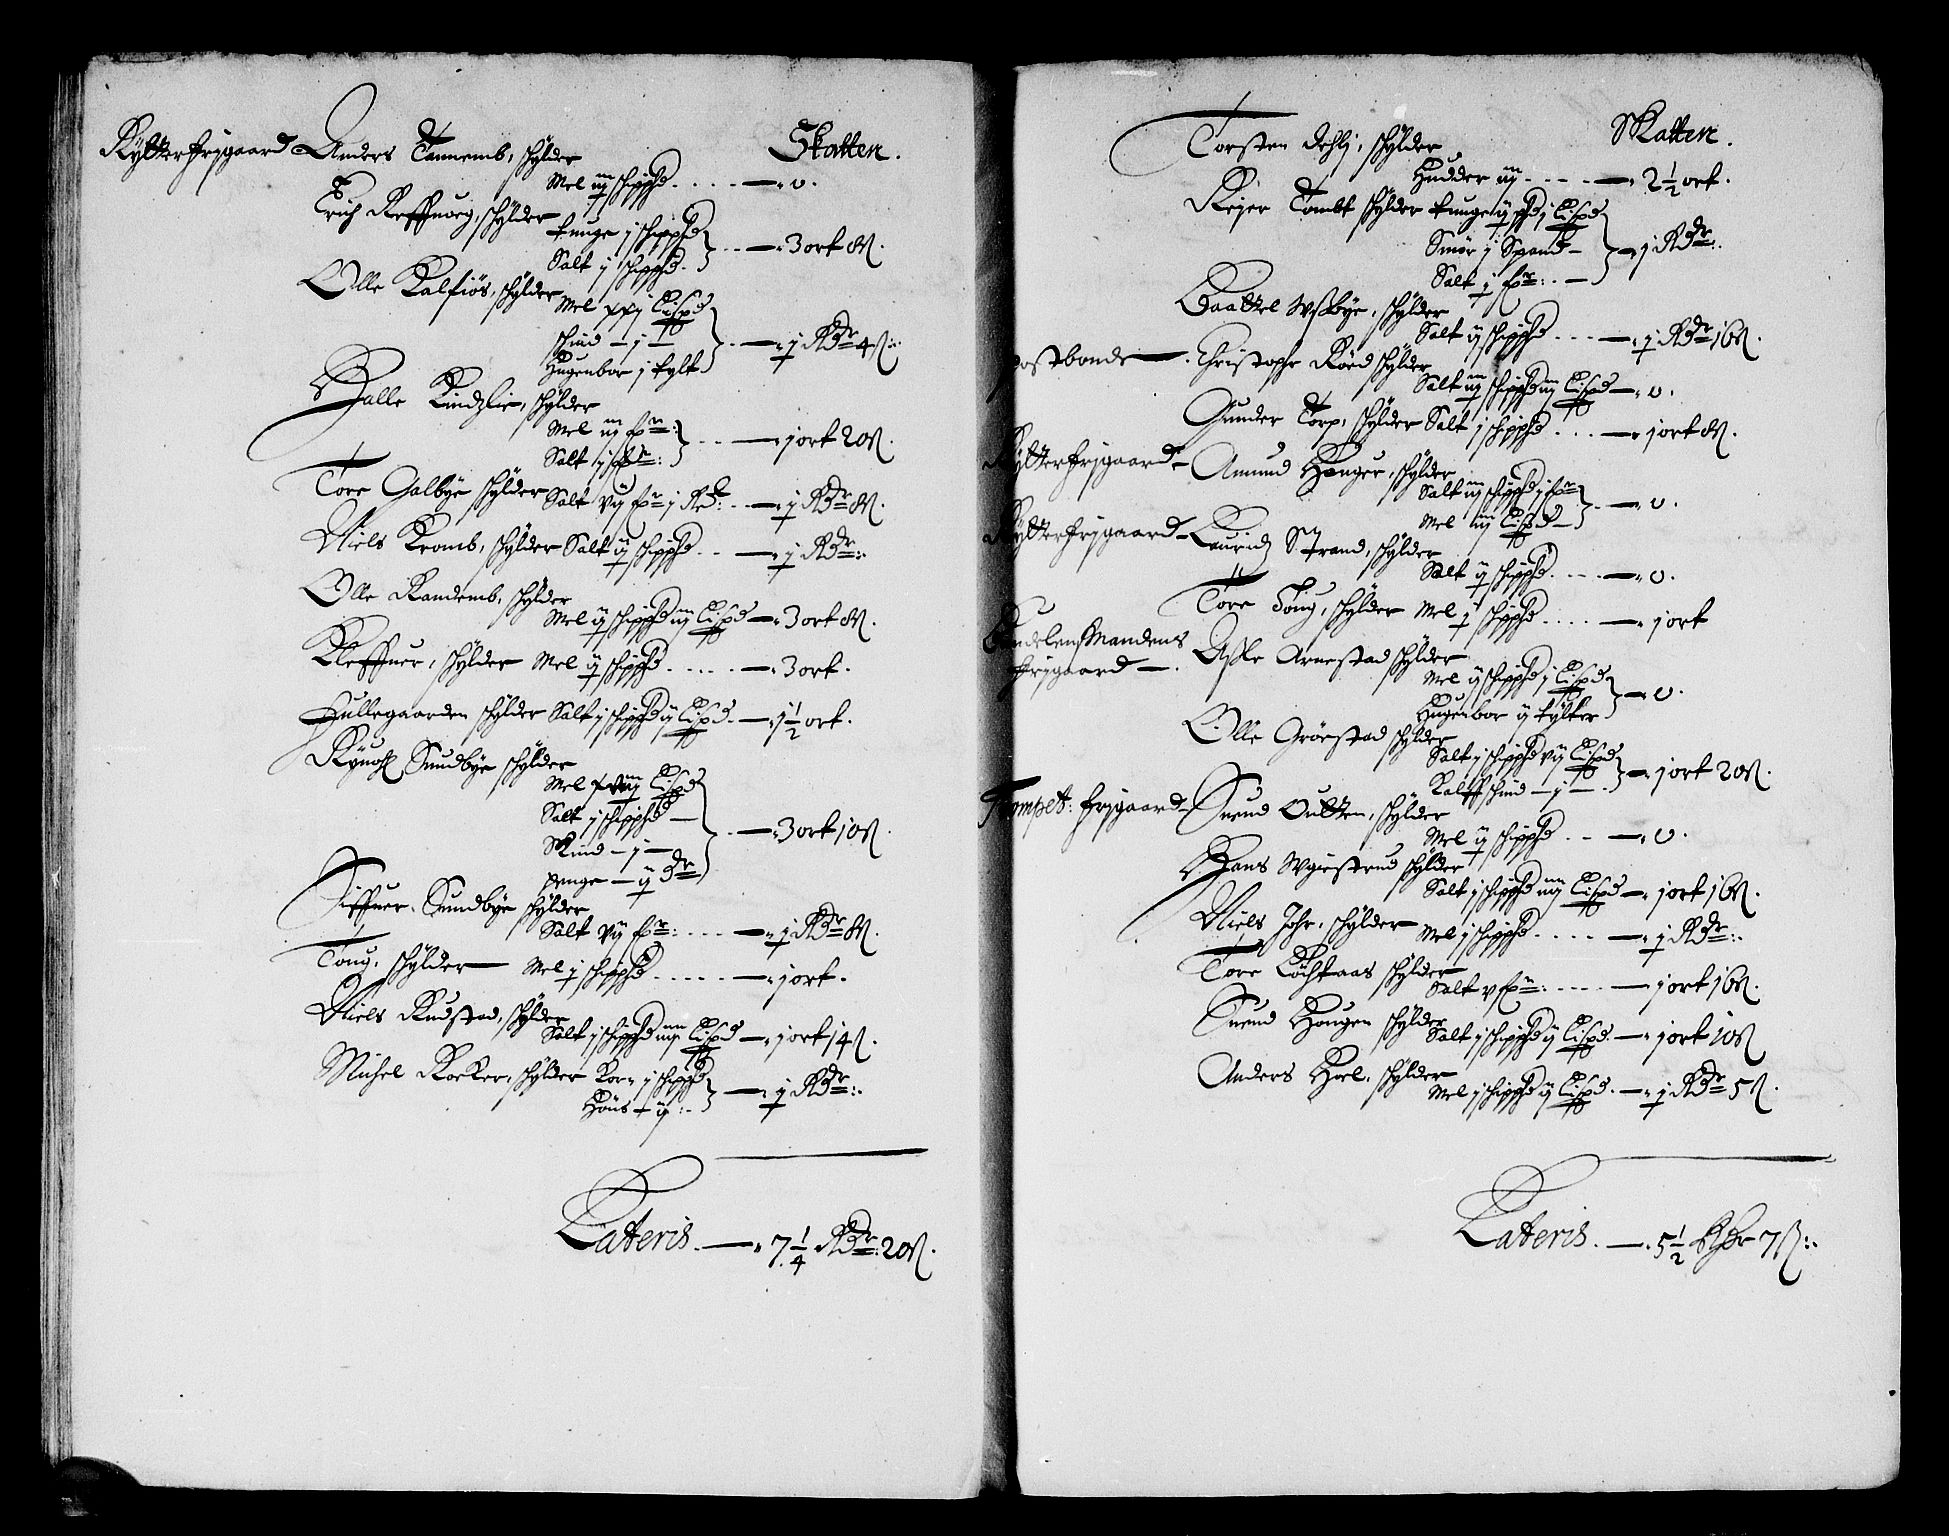 Skatten.
Rytterfrjgaard – Anders Tannemb, schylder
Mel iiij schippd. . . . . — " 0.
Erich Reffsnoeg, schylder
tunge j schippd
Salt j schippd. } . . — " 3 ort 8 ß.
Olle Kalsiös, schylder
Mel xxj Lispd
schind — j —
Hugenbor j tylt } . . — " j Rdr 4 ß :
Halle Kindzlie, schylder
Mel iij fr :
Salt j fr : } . . . — " j ort 20 ß.
Tore Galbye schylder Salt vij fr j Rd : . . — " j Rdr 8 ß.
Niels Kromb, schylder Salt ij schippd . . — " j Rdr :
Olle Randemb, schylder
Mel ij schippd iij Lispd — " 3 ort 8 ß.
Kleffuer, schylder Mel ij schippd . . . . . — " 3 ort .
Hullegaarden schylder Salt j schippd ij Lispd. — " j 1/2 ort .
Rynol Sundbye schylder
Mel Lispd
Salt j schippd —
Skind — j —
penge — ij dr } . . — " 3 ort 10 ß.
Siffuer Sundbye schylder
Salt vij fr : . . . . — " j Rdr 8 ß.
Toug, schylder — Mel j schippd . . . . . . — " j ort .
Niels Rudstad, schylder
Salt j schippd iiij Lispd — " j ort 14 ß.
Michel Rocker, schylder Korn j schippd
Höns — ij : } — " j Rdr :
Lateris. — " 7 1/4 Rdr : 20 ß.
Skatten.
Torsten Dehlj, schylder
Hudder iiij . . . . . — " 2 1/2 ort .
Rejer Tombt schylder tunge ij pd j Lispd
Smör j Spand —
Salt j fr : . — } — j Rdr :
Haattel Wssbye, schylder
Salt ij schippd . . . . — " j Rdr 16 ß.
postbonde — . Christopher Röed schylder
Salt iiij schippd iiij Lispd — " 0.
Gunder Torp, schylder Salt j schippd . . . — " j ort 8 ß.
Rytterfrjgaard – Amund Hanger, schylder
Salt iij schippd j fr
Mel iiij Lispd — } . . — " 0.
Rytterfrjgaard – Lauridz Strand, schylder
Salt ij schippd . . . . — " 0.
Tore Foug, schylder Mel j schippd . . . . . — " j ort
Mandens
frjgaard — . Assle Arnestad schylder
Mel ij schippd j Lispd
Hugenbor ij tylter } — " 0.
Olle Gröestad schylder
Salt j schippd vij Lispd
Kalffschind — j — . } — " j ort 20 ß.
Trompet : frjgaard – Suend Oultten, schylder
Mel ij schippd . . . — " 0.
Hans Wgiestrud schylder
Salt j schippd iiij Lispd — " j ort 16 ß.
Niels Johr, schylder Mel j schippd . . . . . — " j Rdr :
Tore Löchkaas schylder
Salt v fr : . . . . . — j ort 16 ß.
Suend Hougen schylder
Salt j schippd ij Lispd. — " j ort 10 ß
Anders Hoel, schylder
Mel j schippd ij Lispd. — " j Rdr 5 ß.
Lateris. — " 5 1/2 Rdr 7 ß :